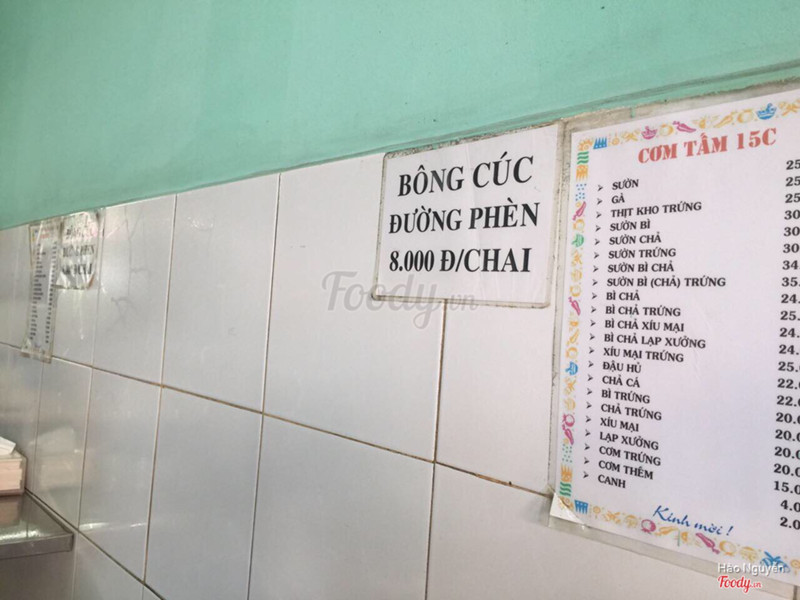 BÔNG CÚC
ĐƯỜNG PHÈN
8.000 Đ/CHAI
CƠM TẤM 15C
SƯỜN
GÀ
THỊT KHO TRỨNG
SƯỜN BÌ
SƯỜN CHẢ
SƯỜN TRỨNG
SƯỜN BÌ CHẢ
SƯỜN BÌ (CHẢ) TRỨNG
BÌ CHẢ
BÌ CHẢ TRỨNG
BÌ CHẢ XÍU MẠI
BÌ CHẢ LẠP XƯỞNG
XÍU MẠI TRỨNG
ĐẬU HỦ
CHẢ CÁ
BÌ TRỨNG
CHẢ TRỨNG
XÍU MẠI
LẠP XƯỞNG
CƠM TRỨNG
CƠM THÊM
CANH
25
25
25
30
30
30
34.
35.
24.
25.
24.
24.
25.0
22.0
22.0
20.0
20.0
20.0
20.0
15.0
4.0
2.0
Kính mời!
Foody.vn
Hảo Nguyễn
Foody.vn